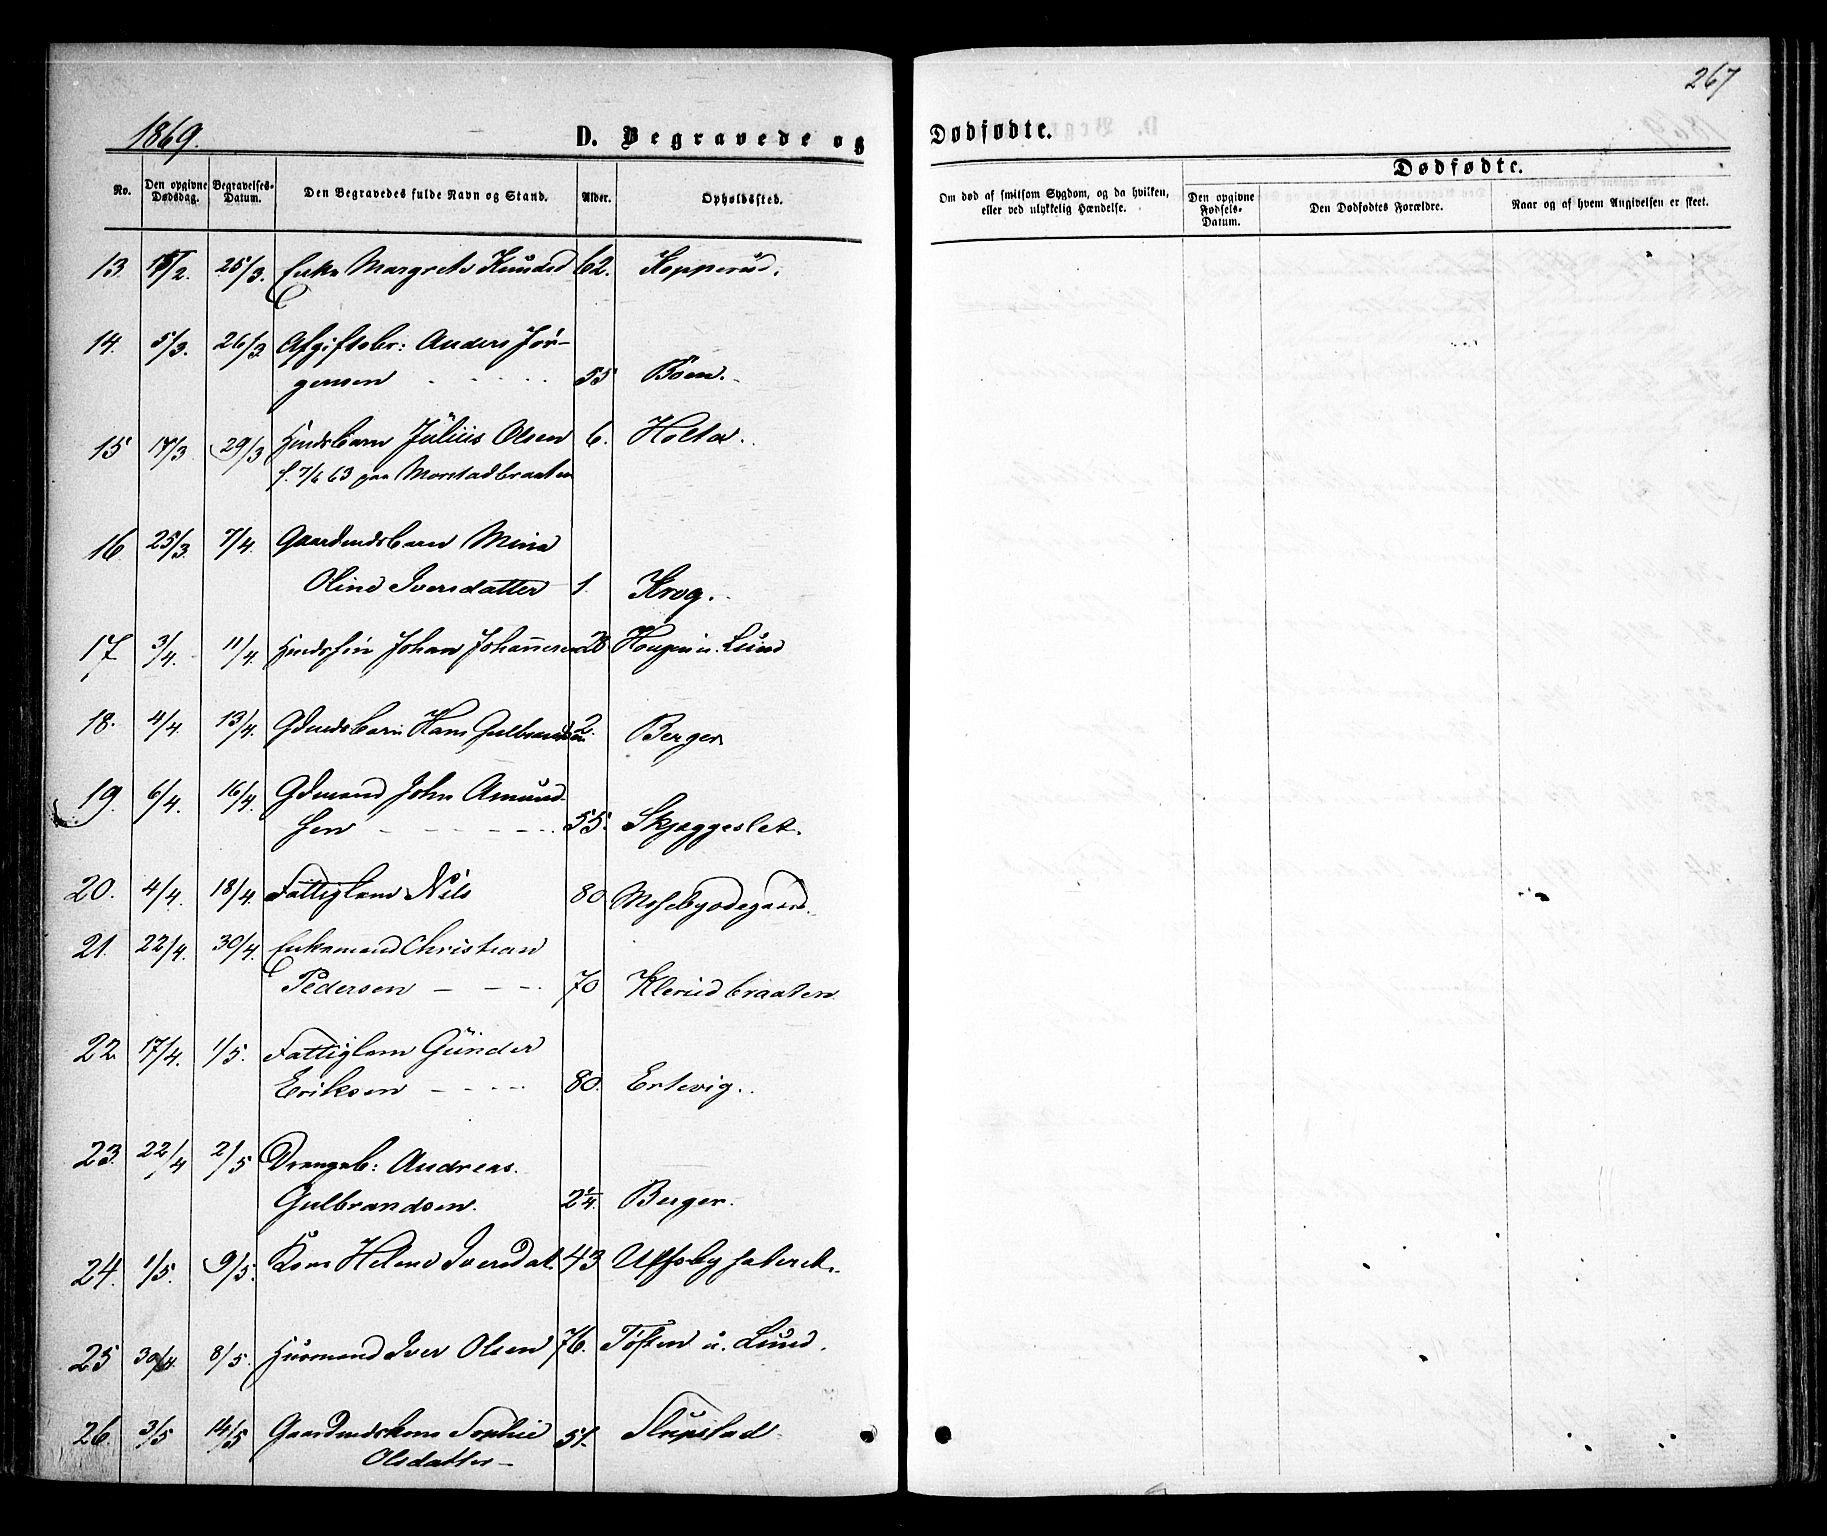 267
1869.
D. Begravede og Dødfødte.
No.
Den opgivne Dødsdag.
Begravelses-Datum.
Den Begravedes fulde Navn og Stand.
Alder.
Opholdssted.
Om død af smitsom Sygdom, og da hvilken, eller ved ulykkelig Hændelse.
Dødfødte.
Den opgivne Fødsels-Datum.
Den Dødfødtes Forældre.
Naar og af hvem Angivelsen er skeet.
13. /2. 25/3. Enke Margrete Knudsd 62. Kopperud.
14. 5/3. 26/3 Afgiftsbr: Anders Jör-
gensen 55 Boen.
15 17/3 29/3 Hmdsbarn Julius Olsen 6. Holta.
f. 7/6 63 paa Morstadbraaten
16 25/3. 7/4. Gaardmdsbarn Mina
Oline Iversdatter 1. Krog.
17 3/4. 11/4. Johan Johannesen 28 Haugen u. Lund
18. 4/4. 13/4. Gdmdsbarn Hans Gulbrandsen 2. Berger
19. 6/4. 16/4. Gdmand John Amund-
sen 55. Skjæggeslet.
20. 4/4. 18/4. Fattiglem Nils 80 Mosebyødegaard.
21. 22/4. 30/4. Enkemand Christian
Pedersen 70 Klerudbraaten
22. 17/4. 1/5. Fattiglem Gunder
Eriksen 80. Ertevig.
23. 22/4 2/5 Drengeb: Andreas
Gulbrandsen. 2 1/4. Berger.
24. 1/5. 9/5. Kone Helene Iversdat. 43
25 30/4. 8/5. Husmand Iver Olsen 76. Tøften u. Lund.
26. 3/5 14/5 Gaardmdskone Sophie 51. Slupstad
Olsdatter